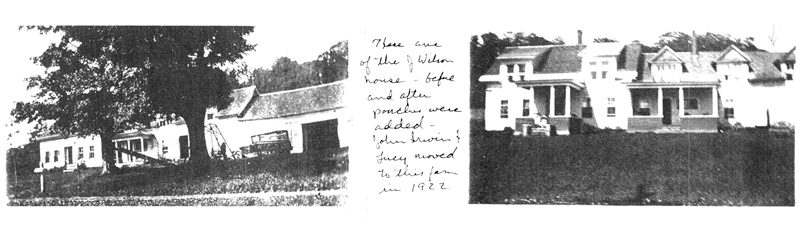 These are
of the J Wilson
house - before
and after
porches were
added -
John Irwin &
Lucy moved
to this farm
in 1922